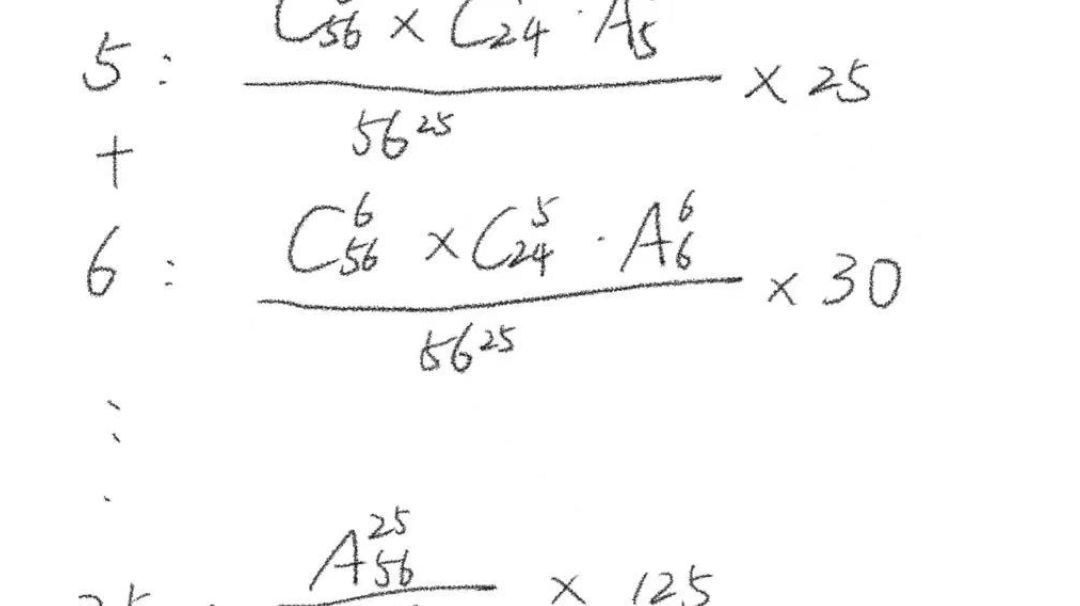 5: C₅₆ × C₂₄ · A₅ / 56²⁵ × 25
+
6: C₅₆⁶ × C₂₄⁵ · A₆⁶ / 56²⁵ × 30
⋮
25: A₅₆²⁵ × 125